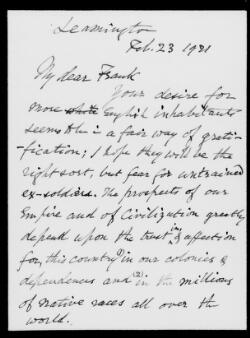 Leamington
Feb. 23 1921
My dear Frank
Your desire for
more white English inhabitants
seems to be in a fair way of grati-
fication; I hope they will be the
right sort, but fear for untrained
ex-soldiers. The prospects of our
Empire and of Civilization greatly
depend upon the trust in, & affection
for, this country (1) in our colonies &
dependences and (2) in the millions
of native races all over the
world.